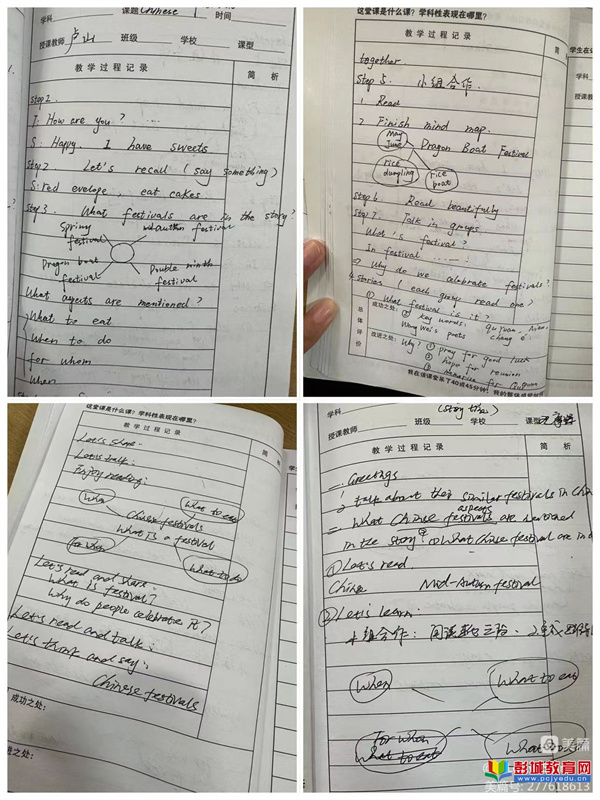 学科
课题 Chinese
时间
授课教师 卢山 班级 学校 课型
教学过程记录 简析
Step 1.
T: How are you?
S: Happy. I have sweets
Step 2 Let's recall (say something)
S: red evelope, eat cakes.
Step 3. What festivals are in the story?
Spring festival
festival
Dragon boat festival
Double ninth festival
What aspects are mentioned?
What to eat
When to do
for whom
When
这堂课是什么课?学科性表现在哪里?
教学过程记录 简
together
Step 5. 小组合作.
1. Read
2. Finish mind map.
May June
Dragon Boat Festival
rice dumpling
rice boat
Step 6 Read beautifully
Step 7. Talk in groups
What's festival?
In festival ......
Why do we celebrate festivals?
4 stories (each group read one)
① What festival is it?
总体评价
成功之处: ② key words: quyuan,
Wang Wei's poets chang e
改进之处: Why? ① pray for good luck
② hope for reunion
③ for Quyuan
这堂课是什么课?学科性表现在哪里?
教学过程记录 简
Let's share.
Let's talk:
Enjoy reading:
When
What to eat
Chinese festivals
What is a festival
For whom
What to do
Let's read and share
What is festival?
Why do people celebrate it?
Let's read and talk:
Let's think and say:
Chinese festivals
成功之处:
进之处:
学科
(Story time)
授课教师 班级 学校 课型
教学过程记录 简析
一. Greetings
talk about the similar festivals in Chin
二. What Chinese festivals are mentioned
aspects
in the story? ① What Chinese festival are in
① Let's read
Chinese Mid-Autumn festival
② Let's learn:
小组合作:
When
What to eat
For whom
What to eat
What to do
美篇
美篇号: 277618613
彭城教育网
www.pcjyedu.cn